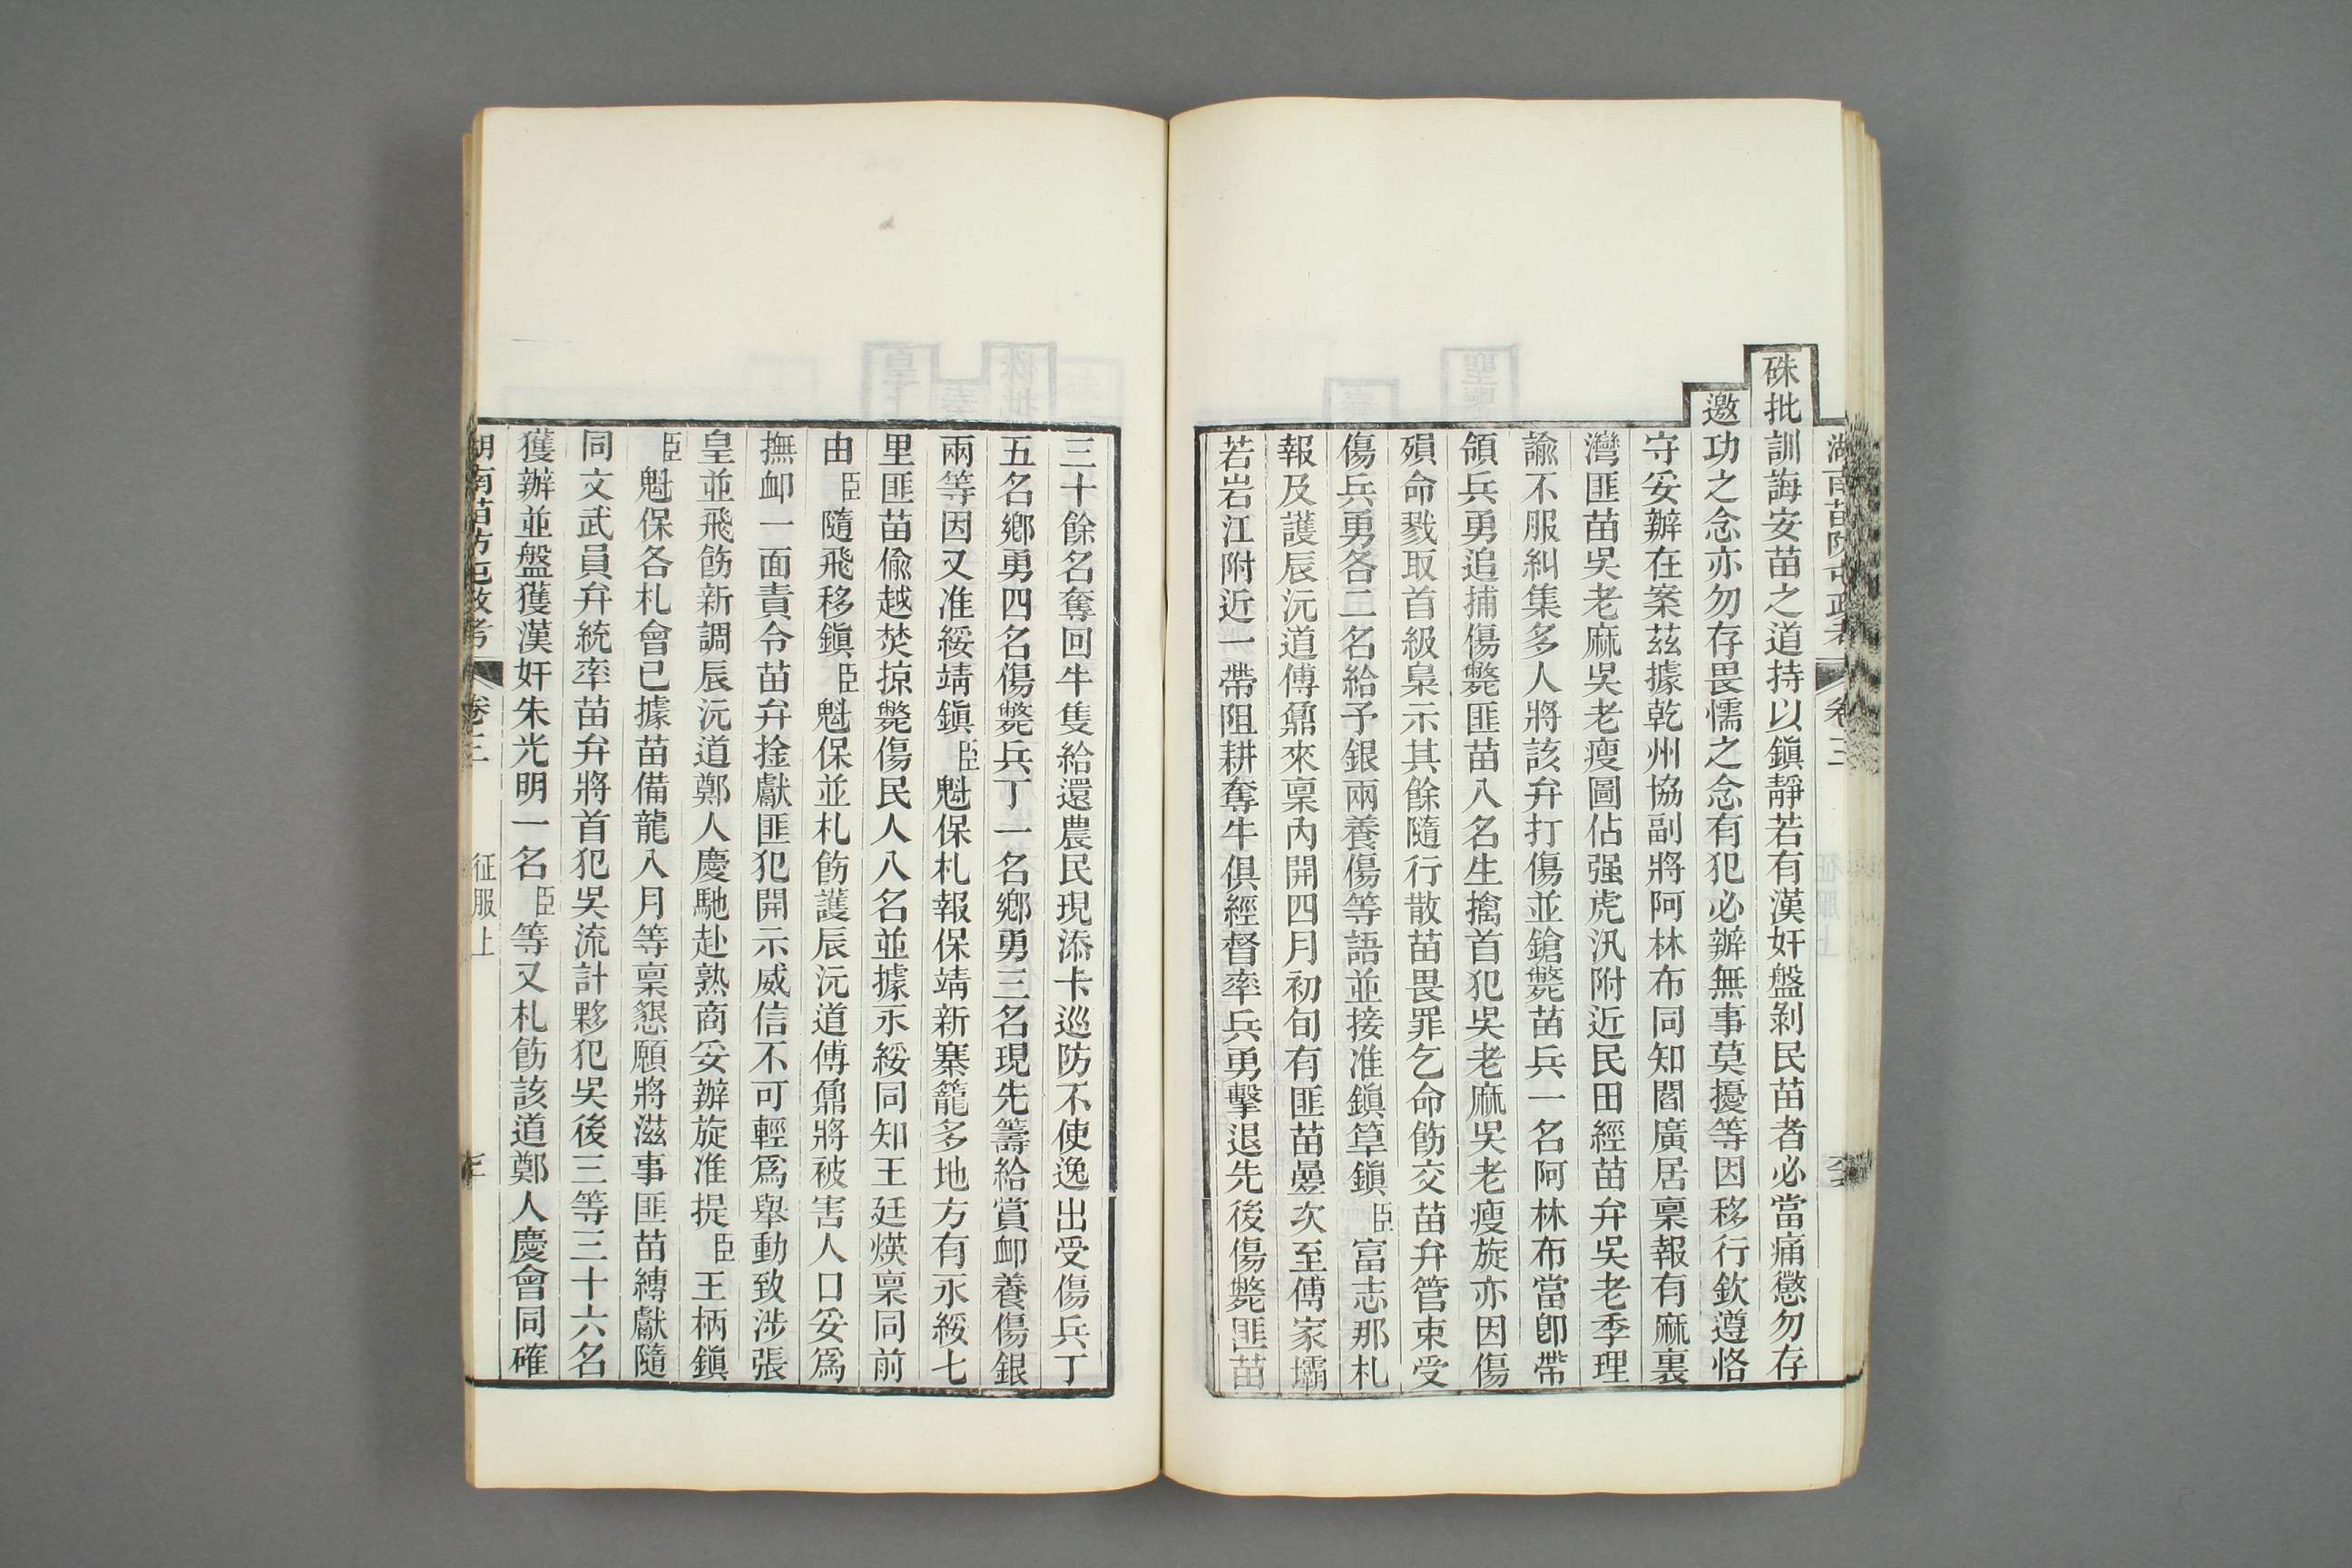 湖南苗防屯政考 卷三
硃批訓誨安苗之道持以鎭靜若有漢奸盤剝民苗者必當痛懲勿存
邀功之念亦勿存畏懦之念有犯必辦無事莫擾等因移行欽遵恪
守妥辦在案茲據乾州協副將阿林布同知閻廣居稟報有麻裏
灣匪苗吳老麻吳老瘦圖佔强虎汛附近民田經苗弁吳老季理
諭不服糾集多人將該弁打傷並鎗斃苗兵一名阿林布當卽帶
領兵勇追捕傷斃匪苗八名生擒首犯吳老麻吳老瘦旋亦因傷
殞命戮取首級梟示其餘隨行散苗畏罪乞命飭交苗弁管束受
傷兵勇各二名給予銀兩養傷等語並接准鎭筸鎭臣富志那札
報及護辰沅道傅鼐來稟內開四月初旬有匪苗疊次至傅家壩
若岩江附近一帶阻耕奪牛俱經督率兵勇擊退先後傷斃匪苗
三十餘名奪回牛隻給還農民現添卡巡防不使逸出受傷兵丁
五名鄉勇四名傷斃兵丁一名鄉勇三名現先籌給賞卹養傷銀
兩等因又准綏靖鎭臣魁保札報保靖新寨籠多地方有永綏七
里匪苗偸越焚掠斃傷民人八名並據永綏同知王廷煐稟同前
由臣隨飛移鎭臣魁保並札飭護辰沅道傅鼐將被害人口妥爲
撫卹一面責令苗弁捡獻匪犯開示威信不可輕爲舉動致涉張
皇並飛飭新調辰沅道鄭人慶馳赴熟商妥辦旋准提臣王柄鎭
臣魁保各札會已據苗備龍入月等稟懇願將滋事匪苗縛獻隨
同文武員弁統率苗弁將首犯吳流計夥犯吳後三等三十六名
獲辦並盤獲漢奸朱光明一名臣等又札飭該道鄭人慶會同確
湖南苗防屯政考 卷三 征服上